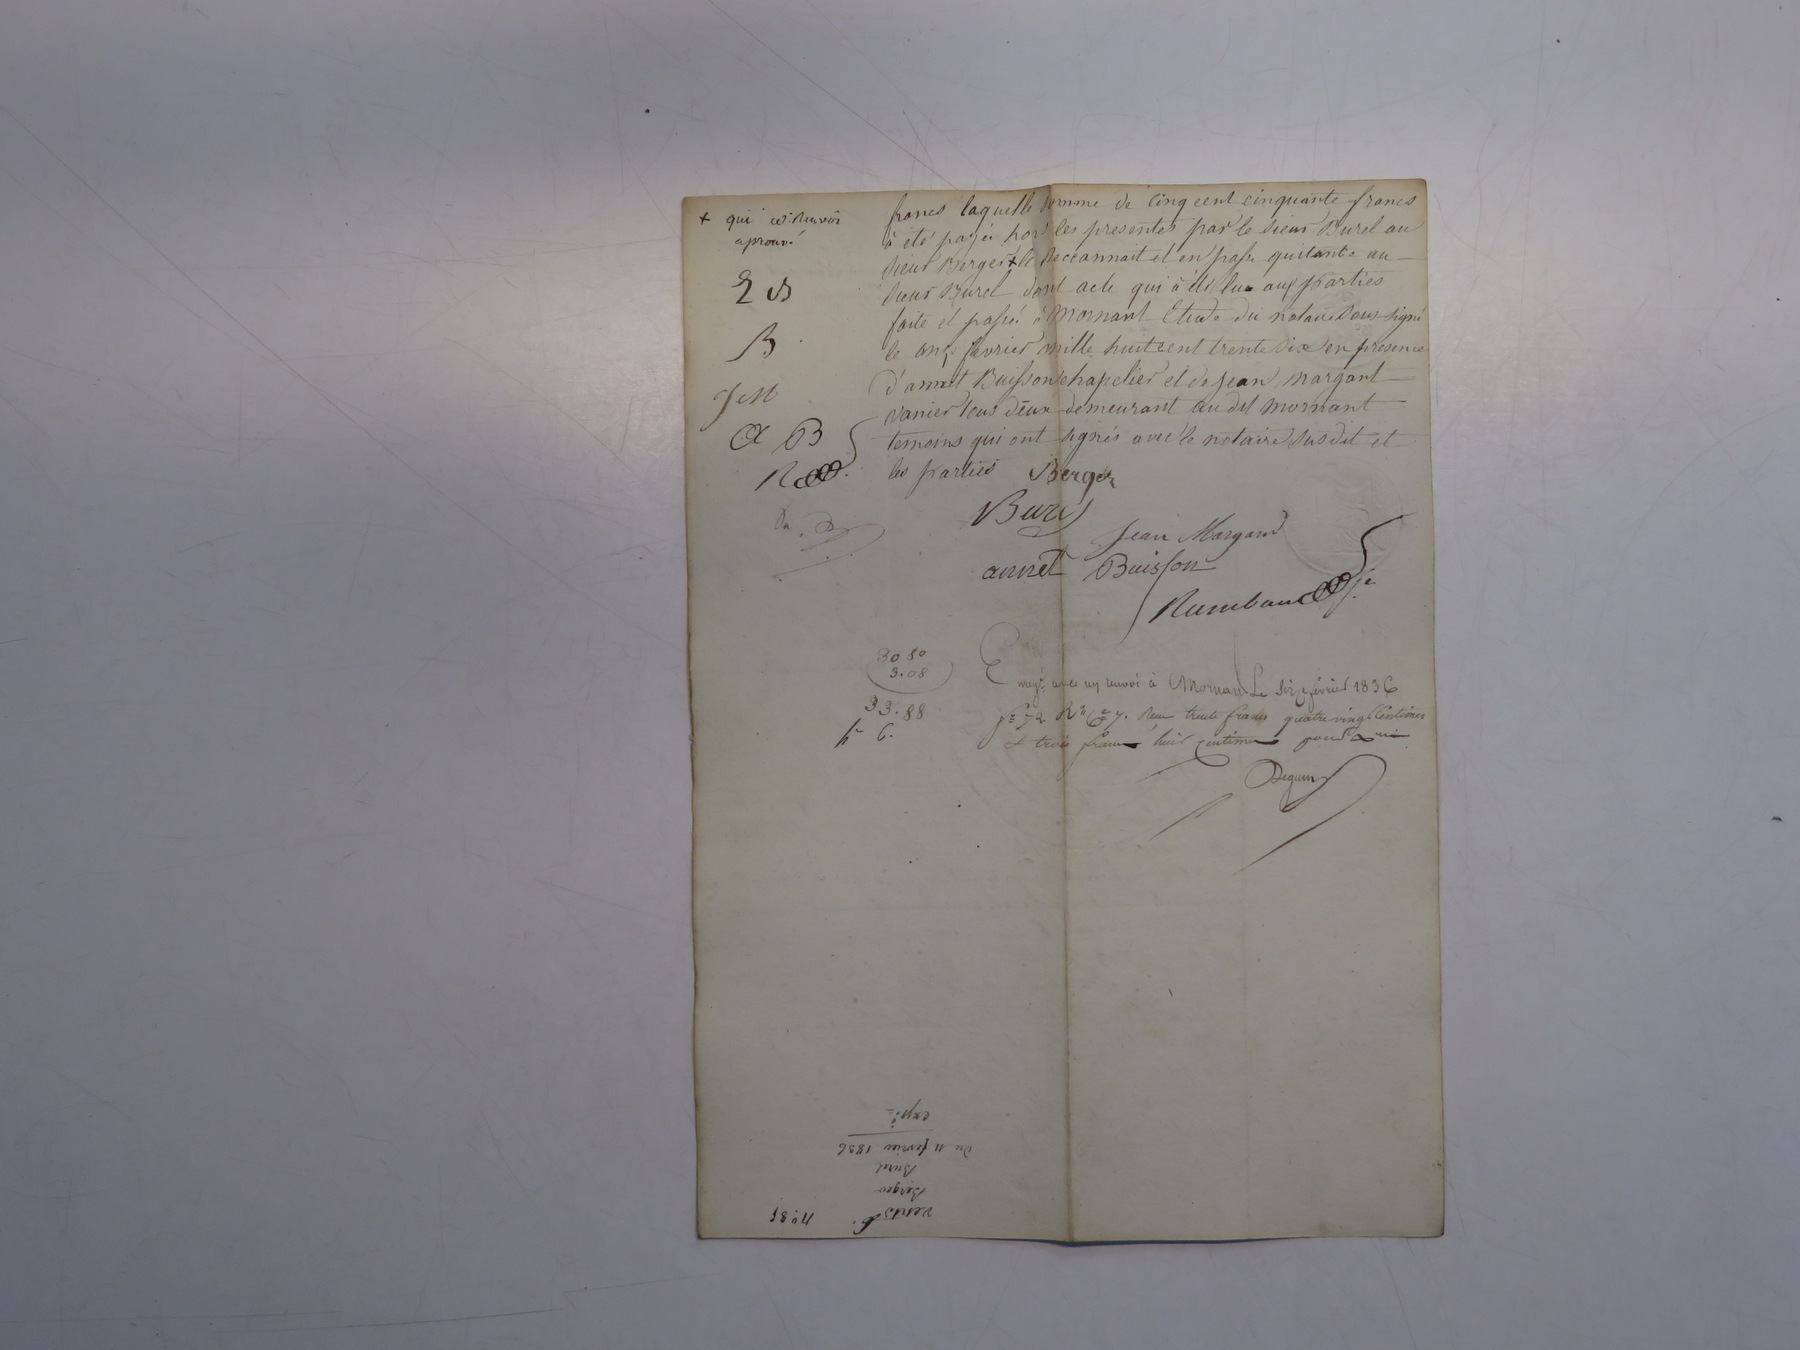 + qui ce renvoi
aprouvé
francs laquelle somme de Cinq cent cinquante francs
à été payée hors les presentes par le sieur Burel au
sieur Berger + le Reconnait et en passe quitance au
sieur Burel dont acte qui à été lue aux parties
faite et passé à Mornant Etude du notaire soussigné
le onze fevrier mille huit cent trente six en presence
d'annet Buisson chapelier et de jean margant
vanier tous deux demeurant au dit mornant
temoins qui ont signés avec le notaire susdit et
les parties Berger
B
J M
A B
Burel
Jean Margand
annet Buisson
30 80
3.08
33.88
6.
avec un renvoi à Mornant Le février 1836
Reçu trente francs quatre vingt Centimes
& trois francs huit Centimes pour
N° 85
vente
Berger
Burel
Du 11 fevrier 1836
expée